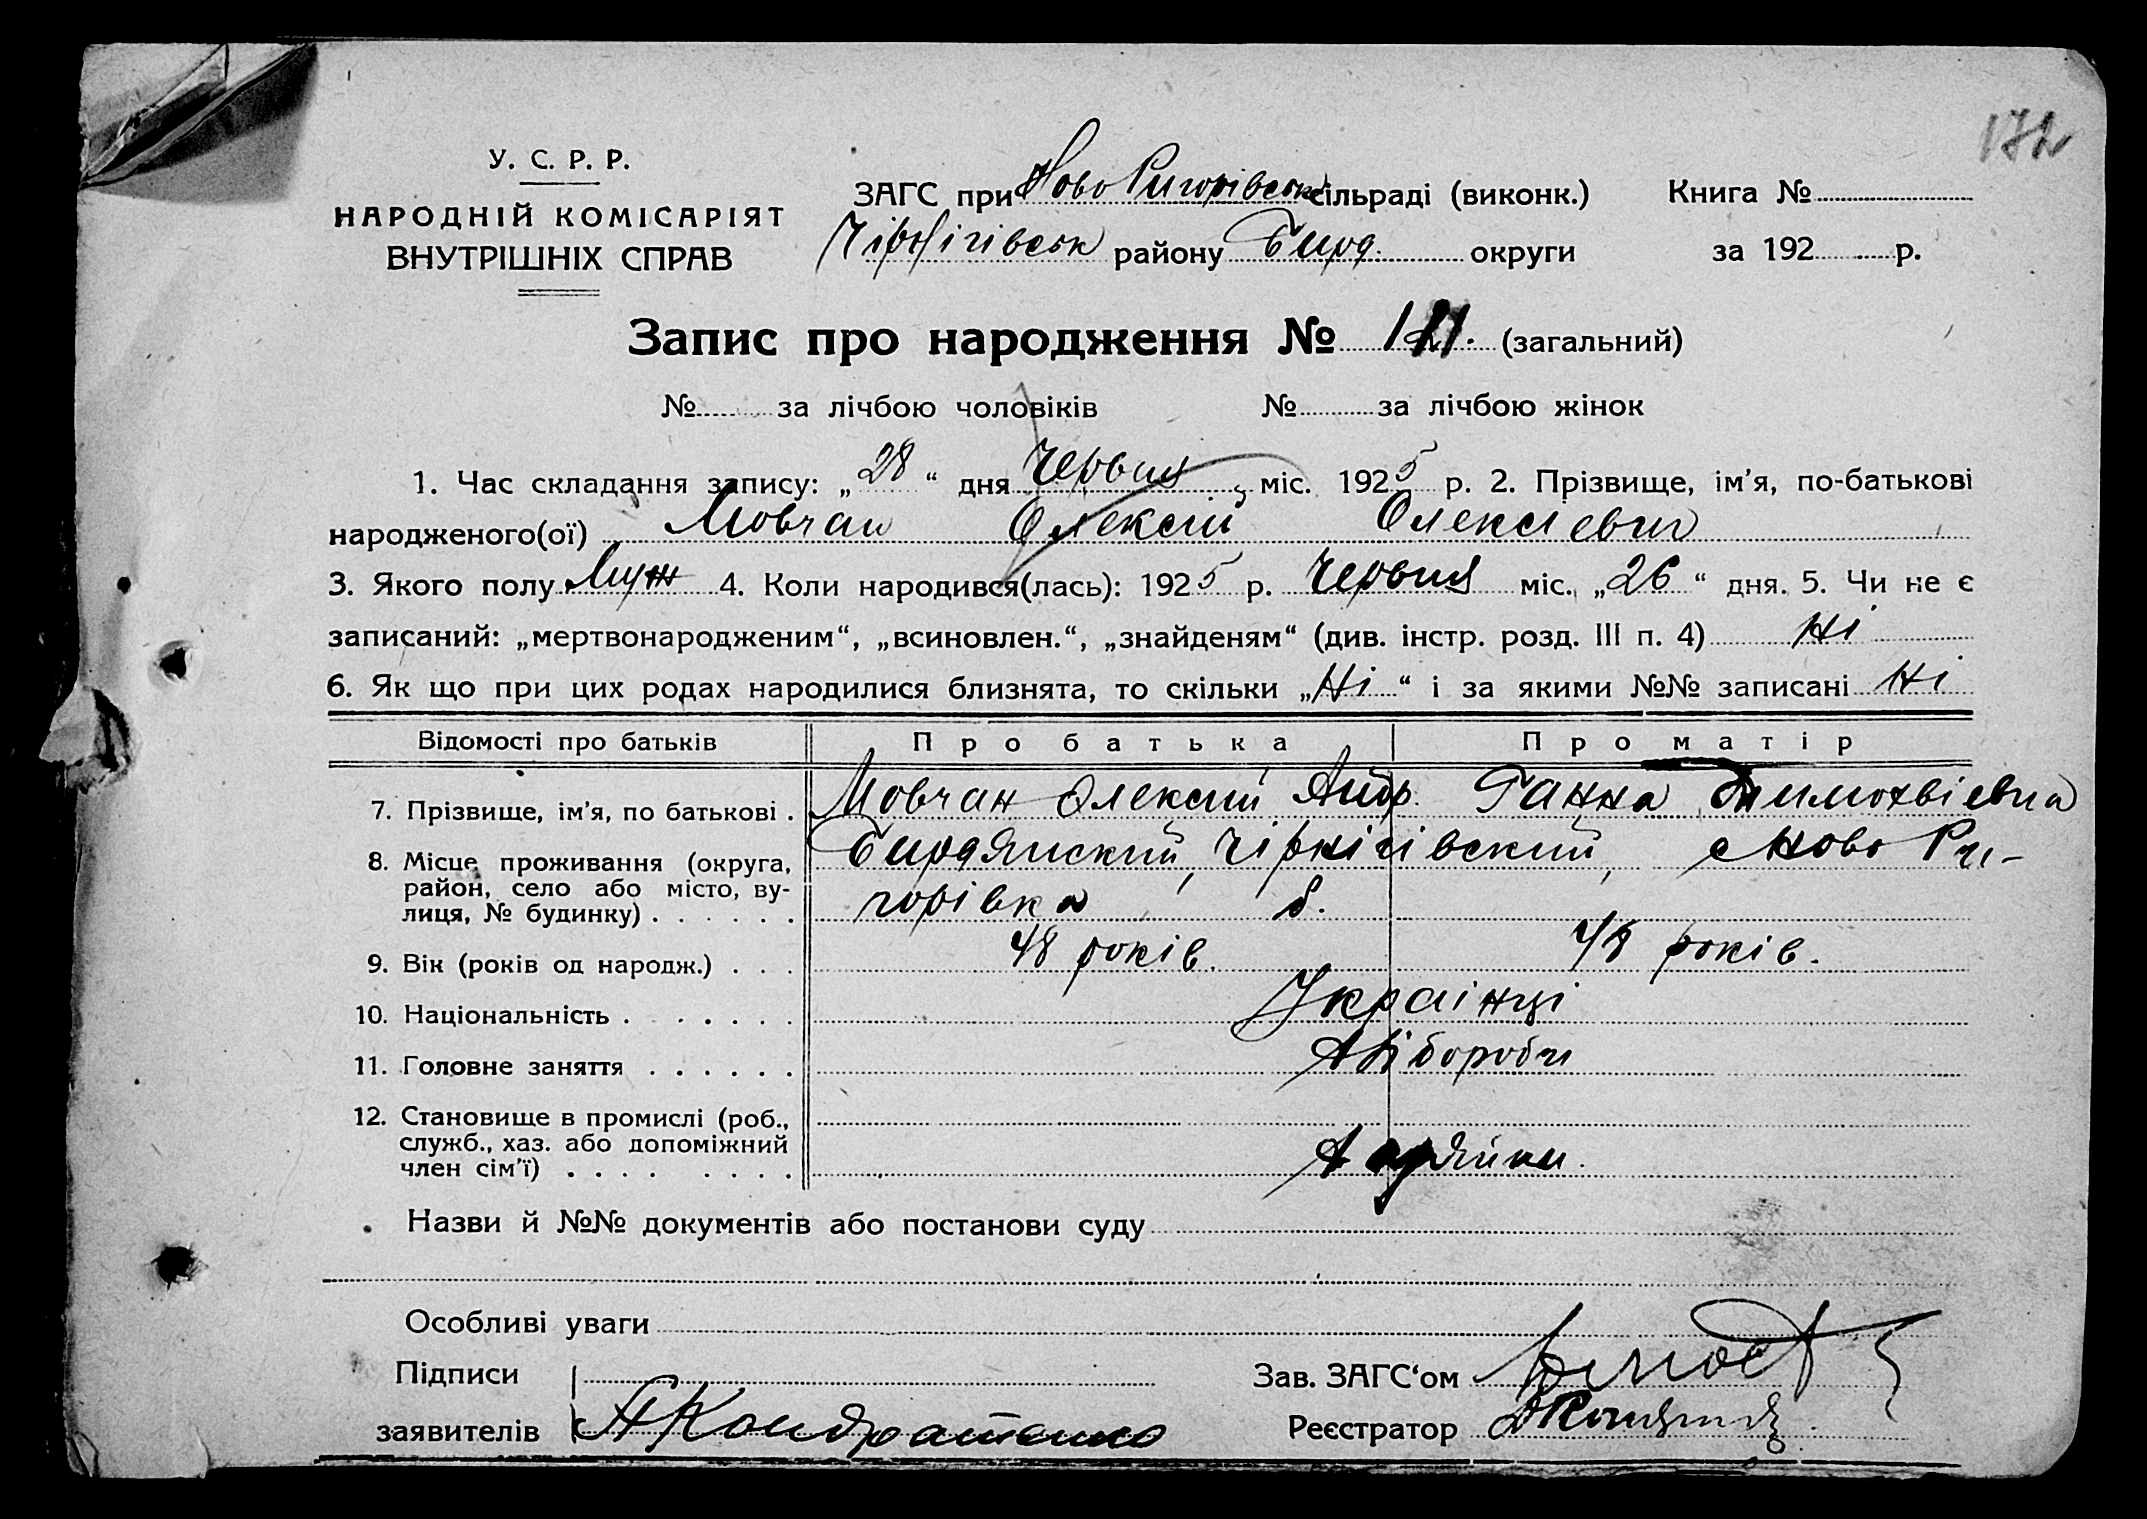 172
У. С. Р. Р.
НАРОДНІЙ КОМІСАРІЯТ
ВНУТРІШНІХ СПРАВ
ЗАГС при Ново Ригорівськ сільраді (виконк.)
Чірнігівськ району Бирд. округи
Книга №
за 192 р.
Запис про народження № (загальний)
№ за лічбою чоловіків № за лічбою жінок
1. Час складання запису: „28“ дня Червня міс. 1925 р. 2. Прізвище, ім'я, по-батькові
народженого(ої) Мовчан Олексій Олексієвич
3. Якого полу Муж 4. Коли народився(лась): 1925 р. Червня міс. „26“ дня. 5. Чи не є
записаний: „мертвонародженим“, „всиновлен.“, „знайденям“ (див. інстр. розд. III п. 4) Ні
6. Як що при цих родах народилися близнята, то скільки „Ні“ і за якими №№ записані Ні
Відомості про батьків Про батька Про матір
7. Прізвище, ім'я, по батькові . Мовчан Олексий Андр. Ганна Тимохвієвна
8. Місце проживання (округа, Бирдянский, Чірнігівский, с Ново Ри-
район, село або місто, ву-
лиця, № будинку) . . . . . . горівка
9. Вік (років од народж.) . . . 48 років. 48 років.
10. Національність . . . . . . . Українці
11. Головне заняття . . . . . . Хліборобы
12. Становище в промислі (роб.,
служб., хаз. або допоміжний
член сім'ї) . . . . . . . . Хазяйни.
Назви й №№ документів або постанови суду
Особливі уваги
Підписи
заявителів Кондратенко
Зав. ЗАГС'ом
Реєстратор